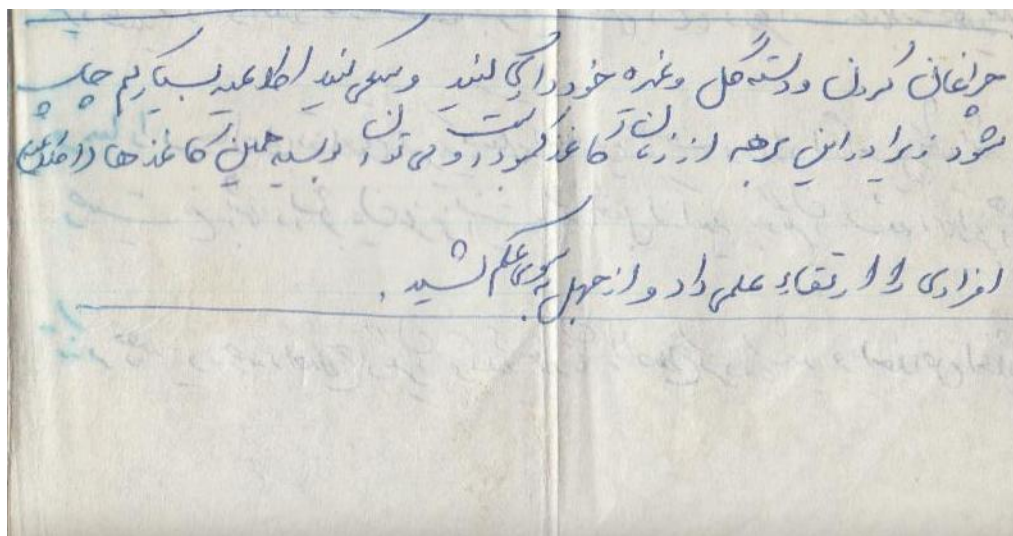 چراغانی کردن و دسته گل و غیره خودداری کنید و سعی کنید اطلاعیه بسیار کم چاپ
شود زیرا در این برهه از زمان کاغذ کمبود است و می توان بوسیله همین کاغذها
افرادی را ارتقاء علمی داد و از جهل به سوی علم کشید.